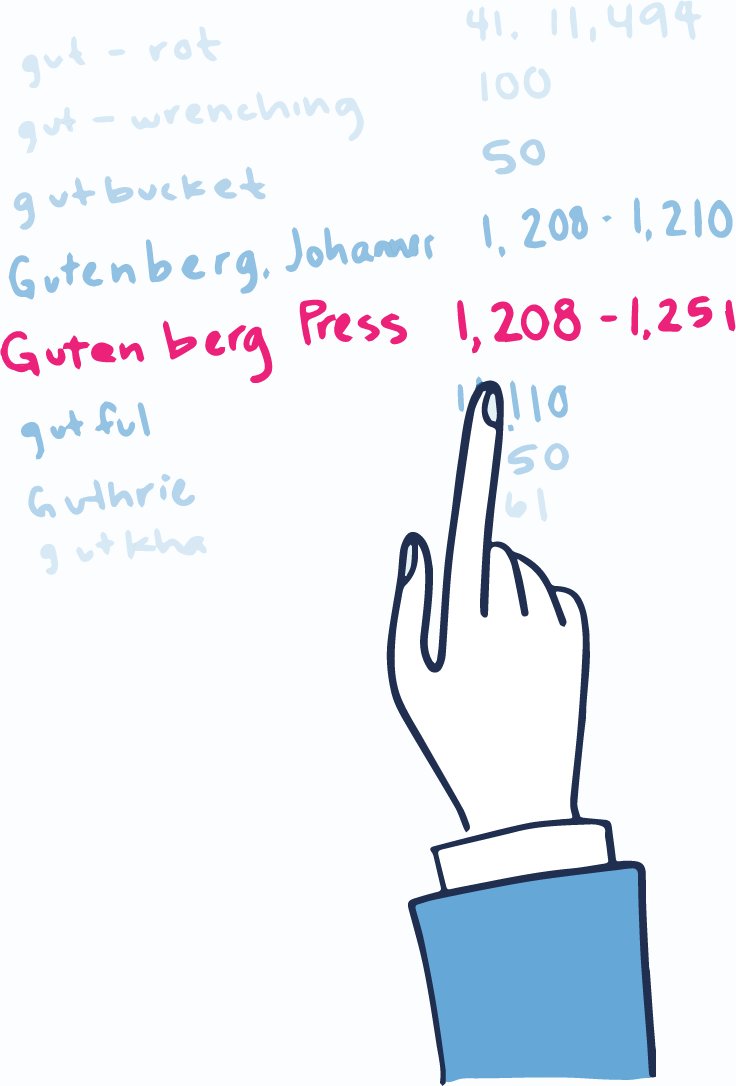 gut - rot 41, 11,494
gut - wrenching 100
gutbucket 50
Gutenberg, Johannes 1, 208 - 1, 210
Gutenberg Press 1, 208 - 1,251
gutful 110
Guthrie 50
gutkha 61